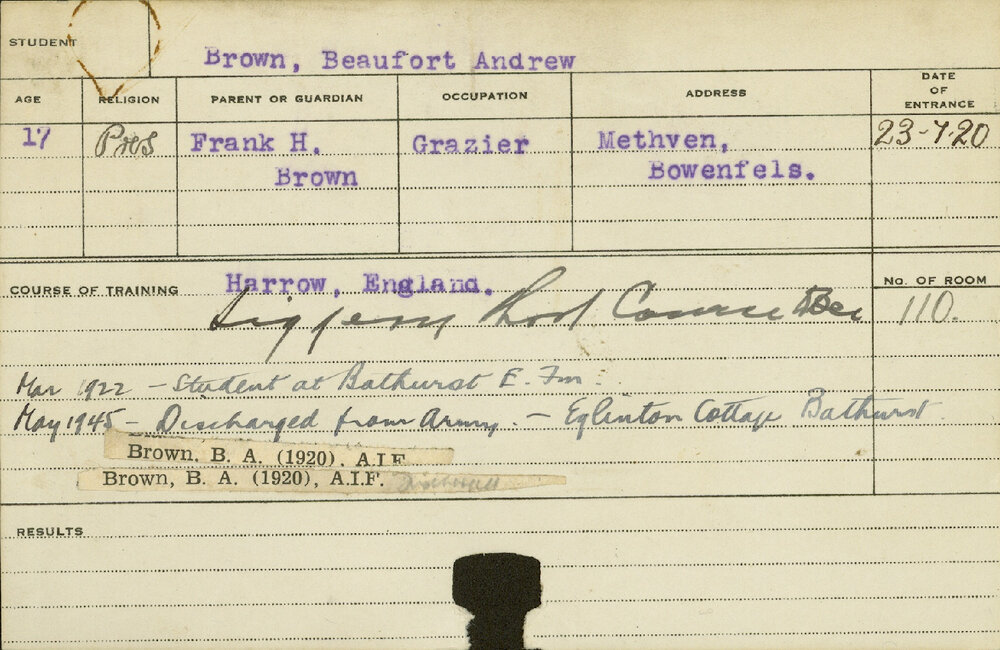 STUDENT
Brown, Beaufort Andrew
AGE RELIGION PARENT OR GUARDIAN OCCUPATION ADDRESS DATE OF ENTRANCE
17 Pres Frank H. Grazier Methven, 23-7-20
Brown Bowenfels.
COURSE OF TRAINING Harrow, England. No. OF ROOM
Course 110.
Mar 1922 - Student at Bathurst E. Fm.
May 1945 - Discharged from Army. - Eglinton Cottage Bathurst
Brown. B. A. (1920), A.I.F.
Brown, B. A. (1920), A.I.F. Discharged
RESULTS